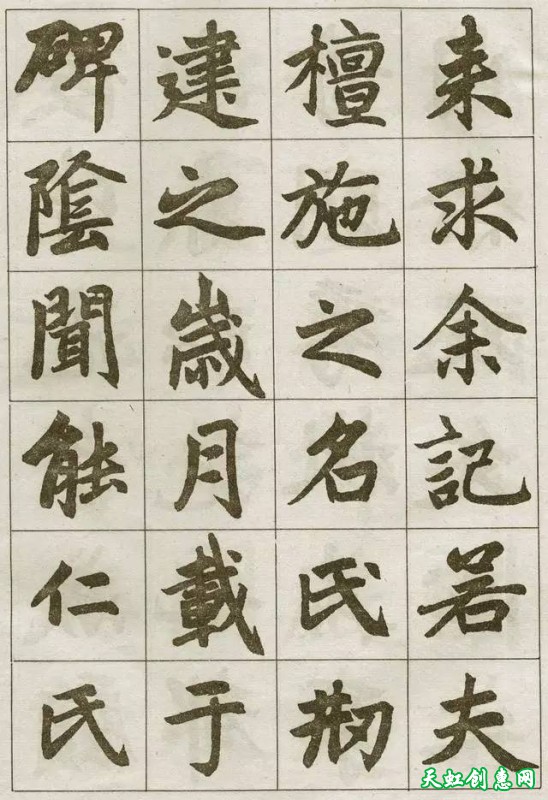 来求余記若夫
檀施之名氏刱
建之歲月載于
碑陰聞能仁氏
天虹创惠网